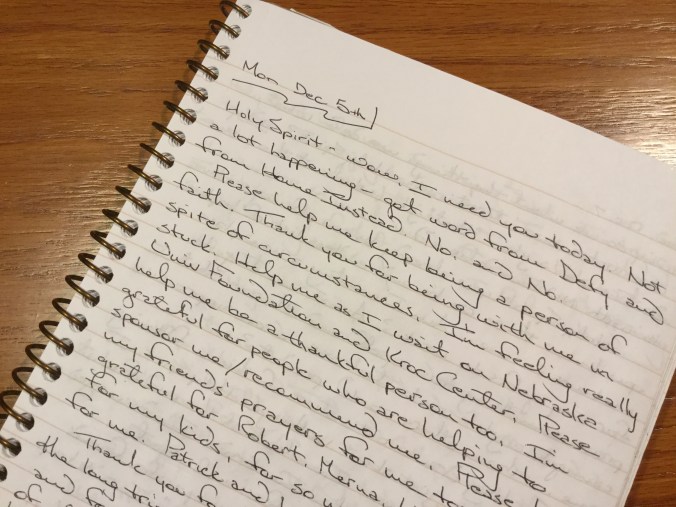 Mon Dec 5th
Holy Spirit - wow. I need you today. Not
a lot happening - got word from Defy and
from Home Instead. No. and No.
Please help me keep being a person of
faith. Thank you for being with me in
spite of circumstances. I'm feeling really
stuck. Help me as I wait on Nebraska
Univ Foundation and Kroc Center. Please
help me be a thankful person too. I'm
grateful for people who are helping to
sponsor me/recommend me. Please
my friends' prayers for me to
grateful for Robert, Merna,
for my kids, for so
for me. Patrick and
Thank you for
the long
and
of